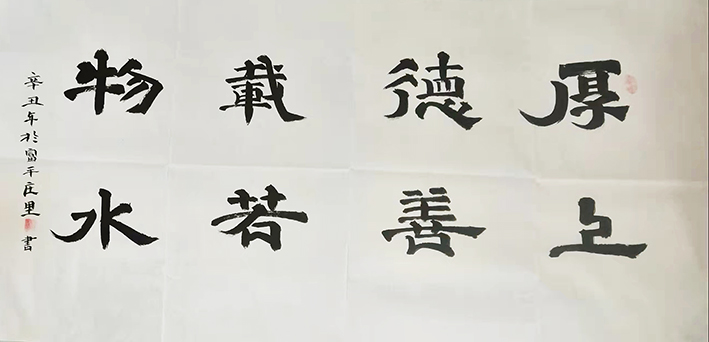 厚德載物
上善若水
辛丑年於富平庄里書